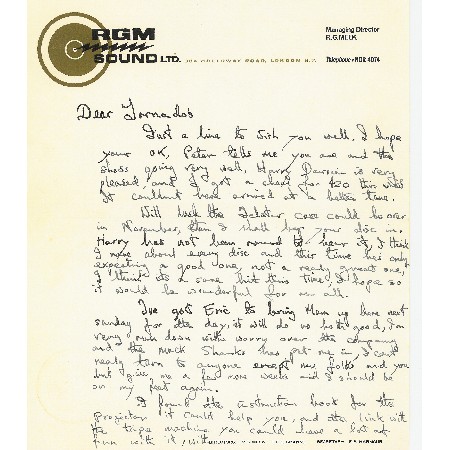 RGM
SOUND LTD.
304 HOLLOWAY ROAD, LONDON N.7.
Managing Director
R.G.MEEK
Telephone: NOR 4074
Dear Tornados
Just a line to wish you well. I hope
your OK, Peter tells me you are and the
shows going very well. Harry is very
pleased, and I got a cheq for £20 this week
it couldnt have arrived at a better time.
Will luck the case could be over
in November, then I shall hear your disc in.
Harry has not been round to hear it, I think
I more about every disc and this time has only
expecting a good one, not a really great one,
I think its a sure hit this time, I hope so
it would be wonderful for us all.
I've got Eric to bring Mum up here next
sunday for the day, it will do us both good, I'm
very run down with worry over the company
and the muck Shanks has put me in, I cant
really turn to anyone except my folks and you
but give me a few more weeks and I should be
on my feet again.
I found the instruction book for the
projector it could help you, and the link with
the tape machine you could have a lot of
fun with it,